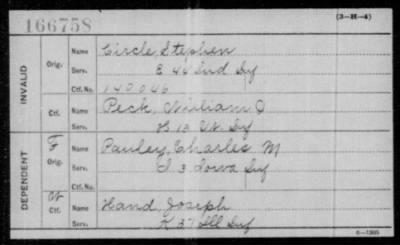 166758
(3-H-4)
INVALID
Orig.
Name Circle, Stephen
Serv. E 44 Ind Inf
Ctf. No. 140046
Ctf.
Name Peck, William O
Serv. H 13 Inf
DEPENDENT
F
Orig.
Name Pauley, Charles M
Serv. I 3 Iowa Inf
Ctf. No.
W
Ctf.
Name Hand, Joseph
Serv. K 37 Ill Inf
6—1305